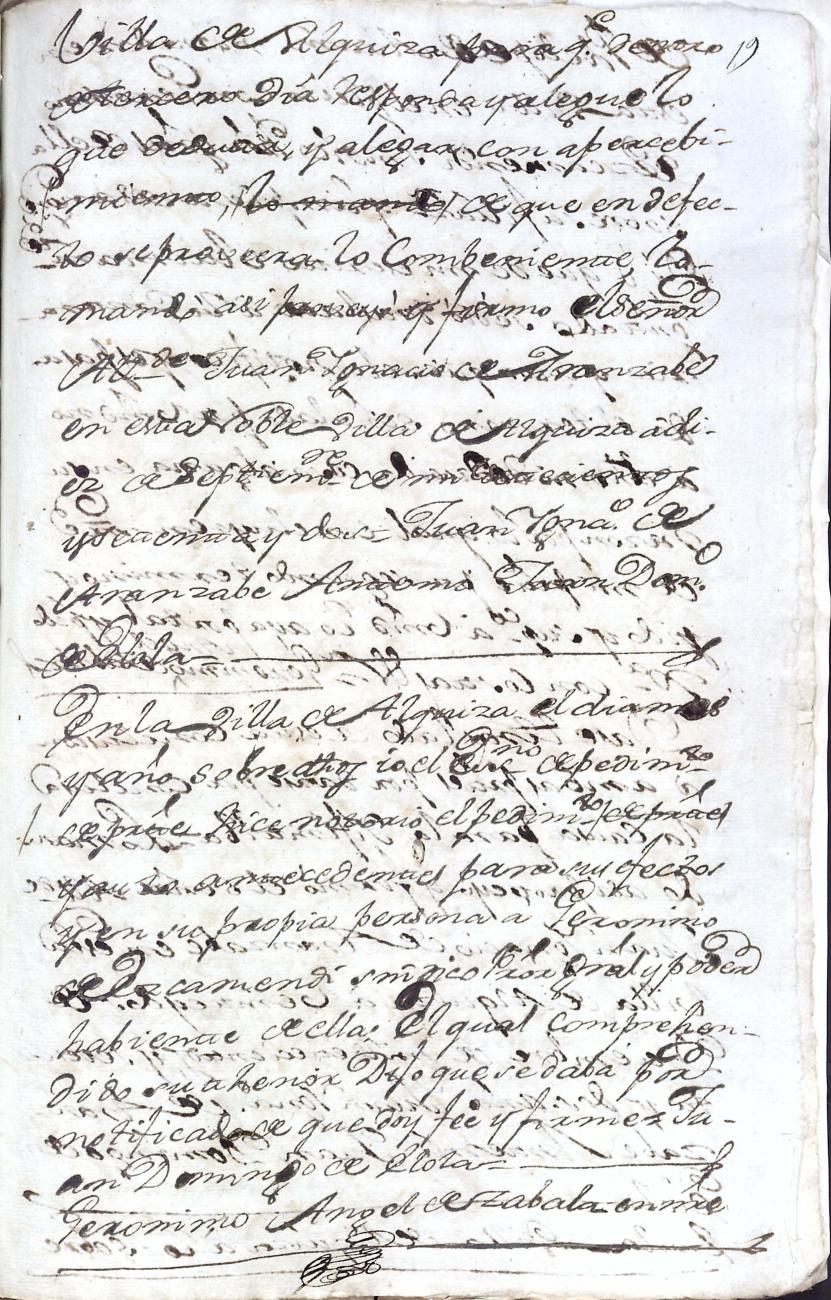 Villa de Alquiza para q.e dentro 19
de tercero dia responda y alegue lo
que deducir, y alegar con apercebi-
miento, lo mando de que en defec-
to se proveera lo Combeniente, lo
mandó asi proveyó y firmo el Señor
Alc.de Juan Ygnacio de Aranzabe
en esta Noble Villa de Alquiza a di-
ez de Septiem.re de mil setecientos
y setenta y dos = Juan Ygna.o de
Aranzabe Antemi Juan Dom.o
de Elola =
En la Villa de Alquiza el dia mes
y año sobredhos io el Ess.no de pedim.to
de p.te hice notorio el pedim.to de p.te
y auto antecedentes para sus efectos
y en su propia persona a Geronimo
de Lizcamendi sindico Pror Gral y poder
habiente de ella. El qual comprehen-
dido su thenor Dijo que se daba por
notificado de que doy fee y firme = Ju-
an Domingo de Elola =
Geronimo Angel de Zabala en nre